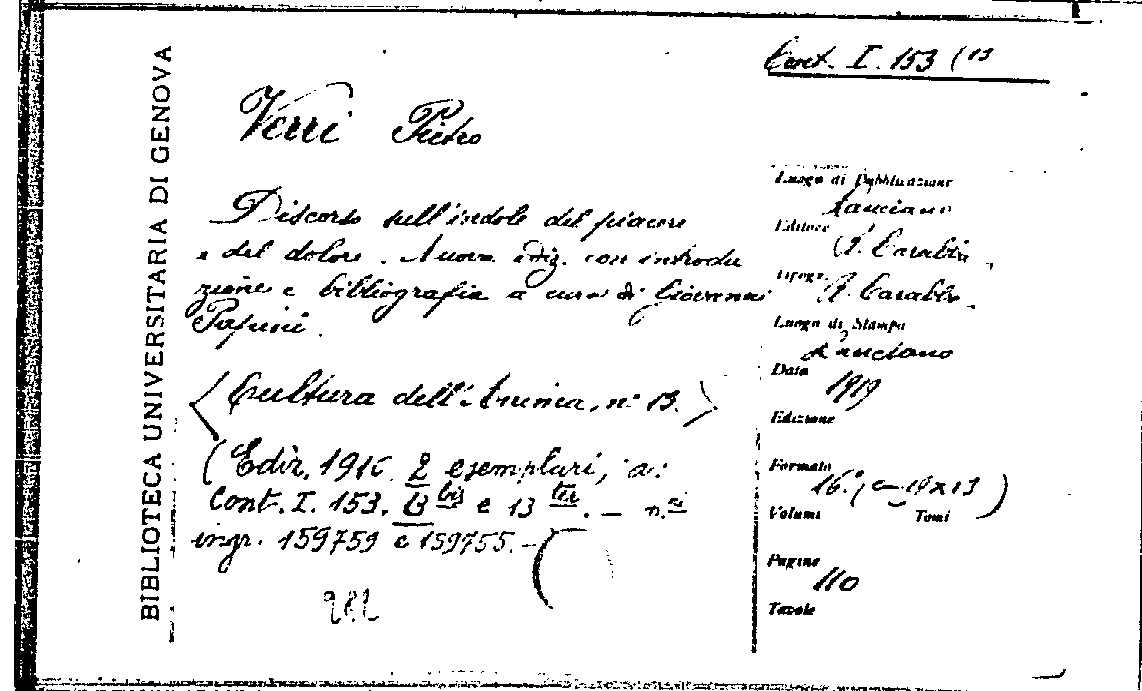 BIBLIOTECA UNIVERSITARIA DI GENOVA
Cont. I. 153 (13
Verri Pietro
Discorso sull'indole del piacere
e del dolore. Nuova ediz. con introdu
zione e bibliografia a cura di Giovanni
Papini.
(Cultura dell'Anima, n° 13.)
(Ediz. 1916 2 esemplari, a:
Cont. I. 153. 13 bis e 13 ter. — n.ri
ingr. 159759 e 159755. —
Luogo di Pubblicazione
Lanciano
Editore
R. Carabba
Tipogr.
R. Carabba
Luogo di Stampa
Lanciano
Data
1919
Edizione
Formato
16°, (cm 19x13)
Volumi Tomi
Pagine
110
Tavole